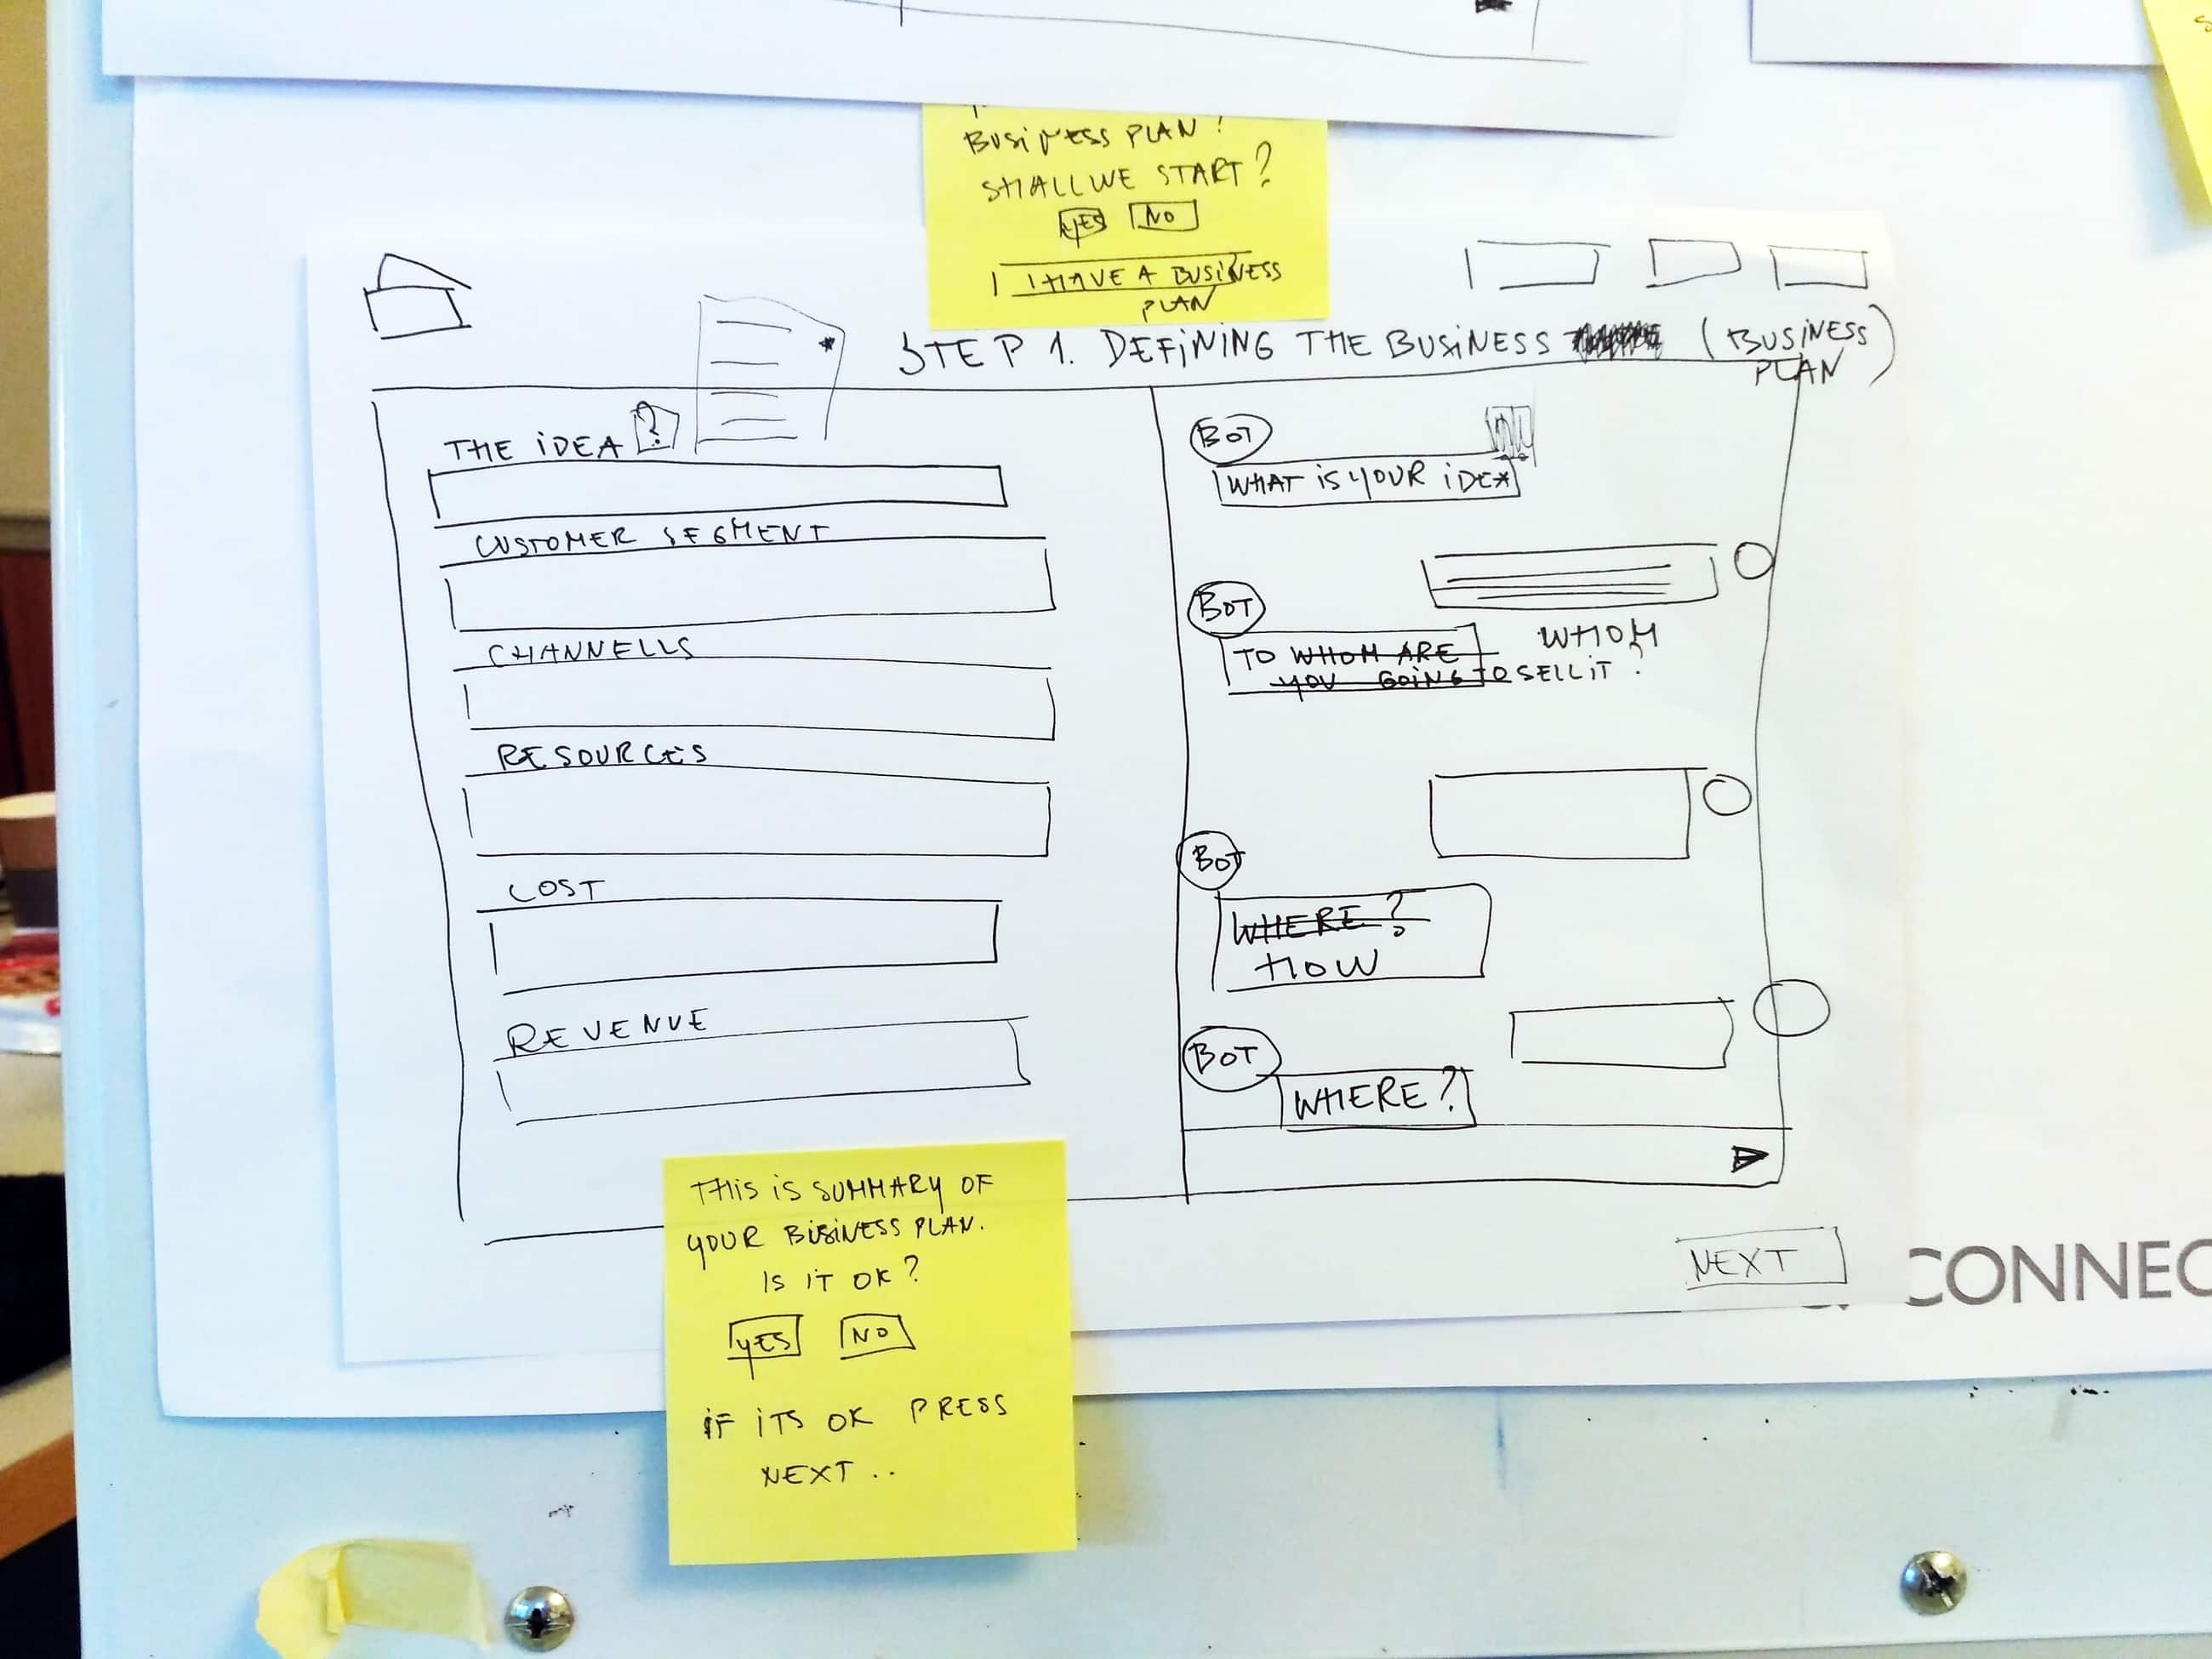 BUSINESS PLAN!
SHALL WE START?
YES NO
I HAVE A BUSINESS
PLAN
STEP 1. DEFINING THE BUSINESS (BUSINESS
PLAN)
THE IDEA ?
CUSTOMER SEGMENT
CHANNELLS
RESOURCES
COST
REVENUE
BOT
WHAT IS YOUR IDEA
BOT
TO WHOM ARE WHOM
YOU GOING TO SELL IT?
BOT
WHERE?
HOW
BOT
WHERE?
NEXT
CONNEC
THIS IS SUMMARY OF
YOUR BUSINESS PLAN.
IS IT OK?
YES NO
IF ITS OK PRESS
NEXT ..